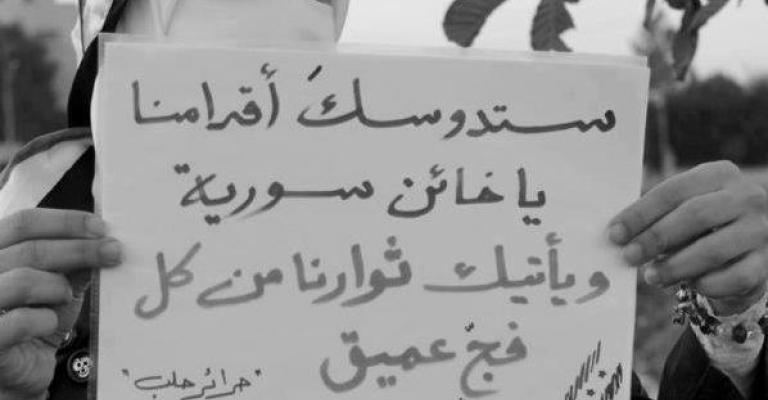 ستدوسكَ أقدامنا
يا خائن سورية
ويأتيك ثوارنا من كل
فجّ عميق
"حرائر حلب"